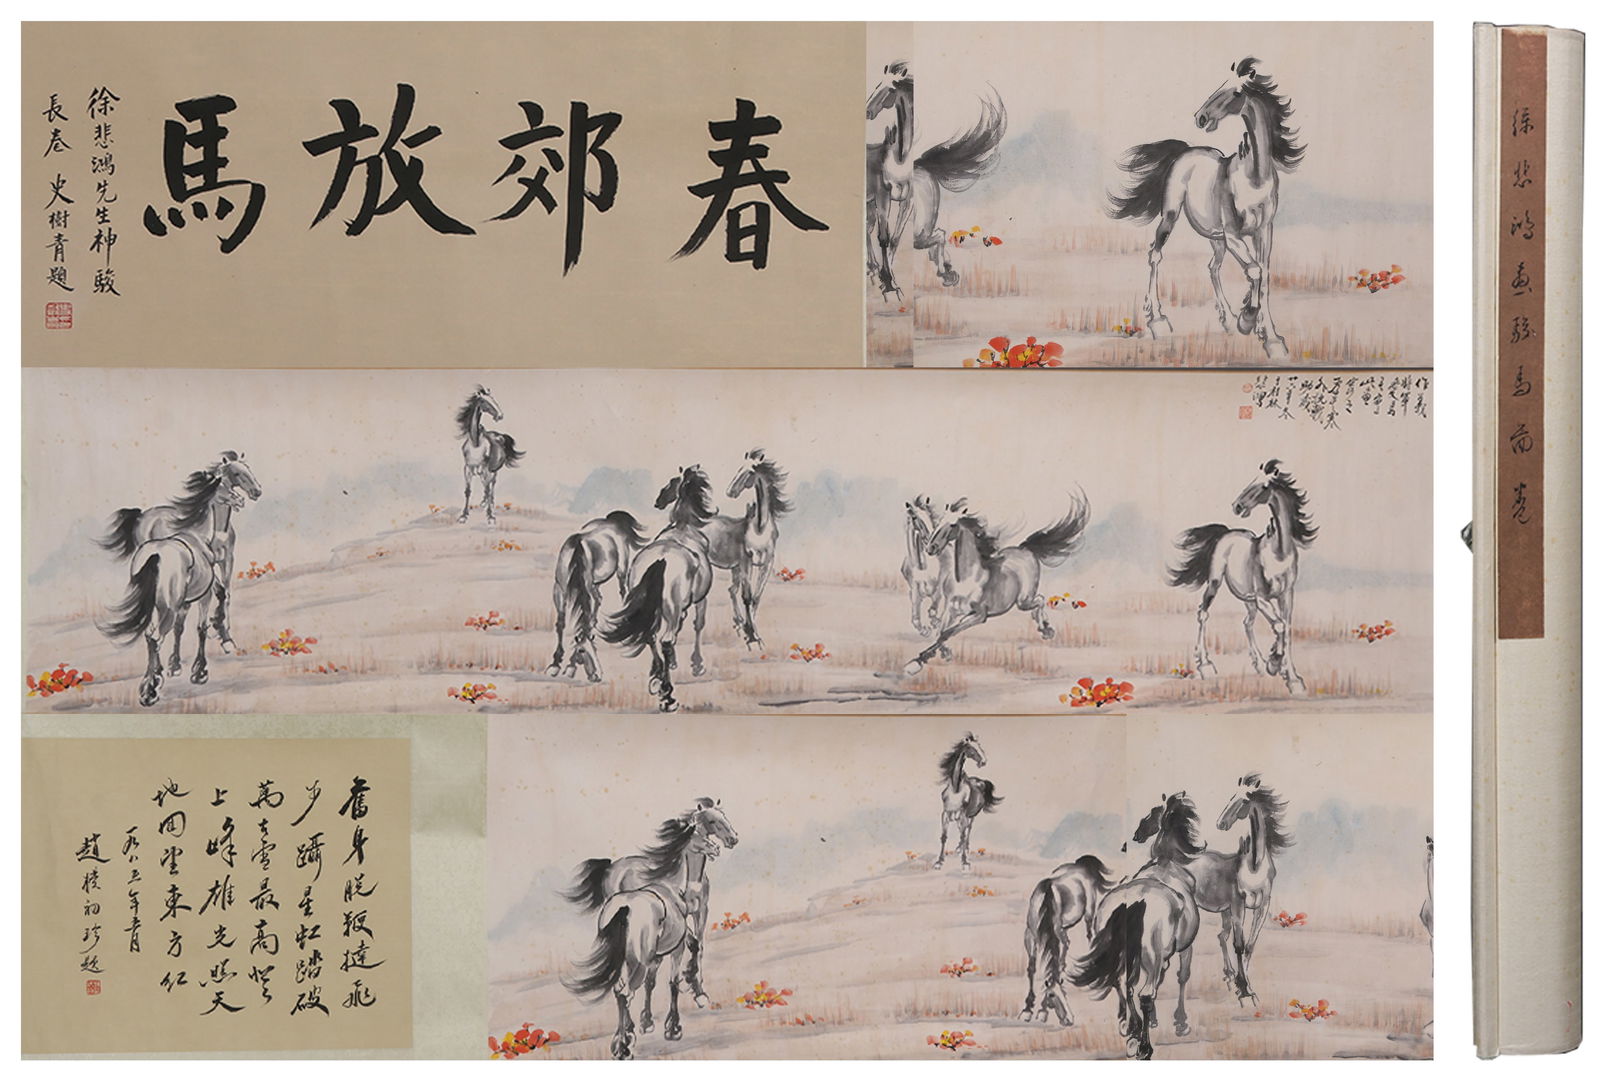 春郊放馬
徐悲鴻先生神駿
長卷 史樹青題
奮身脱鞭撻飛
步躡星虹踏破
萬古雪最高
上峰雄光照天
地回望東方紅
一九八五年青月
趙樸初珍題
徐悲鴻畫駿馬圖卷